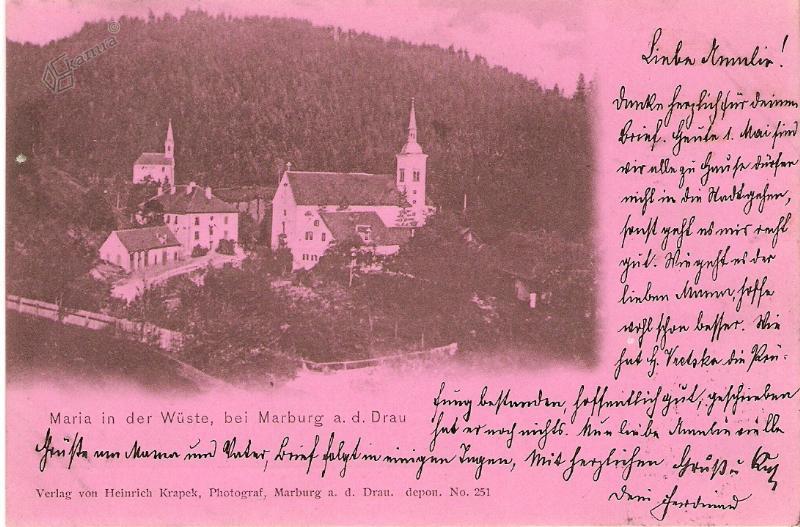 Kamra
Liebe Amalie!
Danke herzlich für deinen
Brief. Heute 1. Mai sind
wir alle zu Hause dürfen
nicht in die Stadt gehen,
sonst geht es mir recht
gut. Wie geht es der
lieben Mama, hoffe
wohl schon besser. Wie
hat H. die Prü-
fung bestanden, hoffentlich gut, geschrieben
hat er noch nichts. Nun liebe Amalie viele
Grüße an Mama und Vater, Brief folgt in einigen Tagen, Mit herzlichen Gruß u. Kuß
Dein Ferdinand
Maria in der Wüste, bei Marburg a. d. Drau
Verlag von Heinrich Krapek, Photograf, Marburg a. d. Drau. depon. No. 251